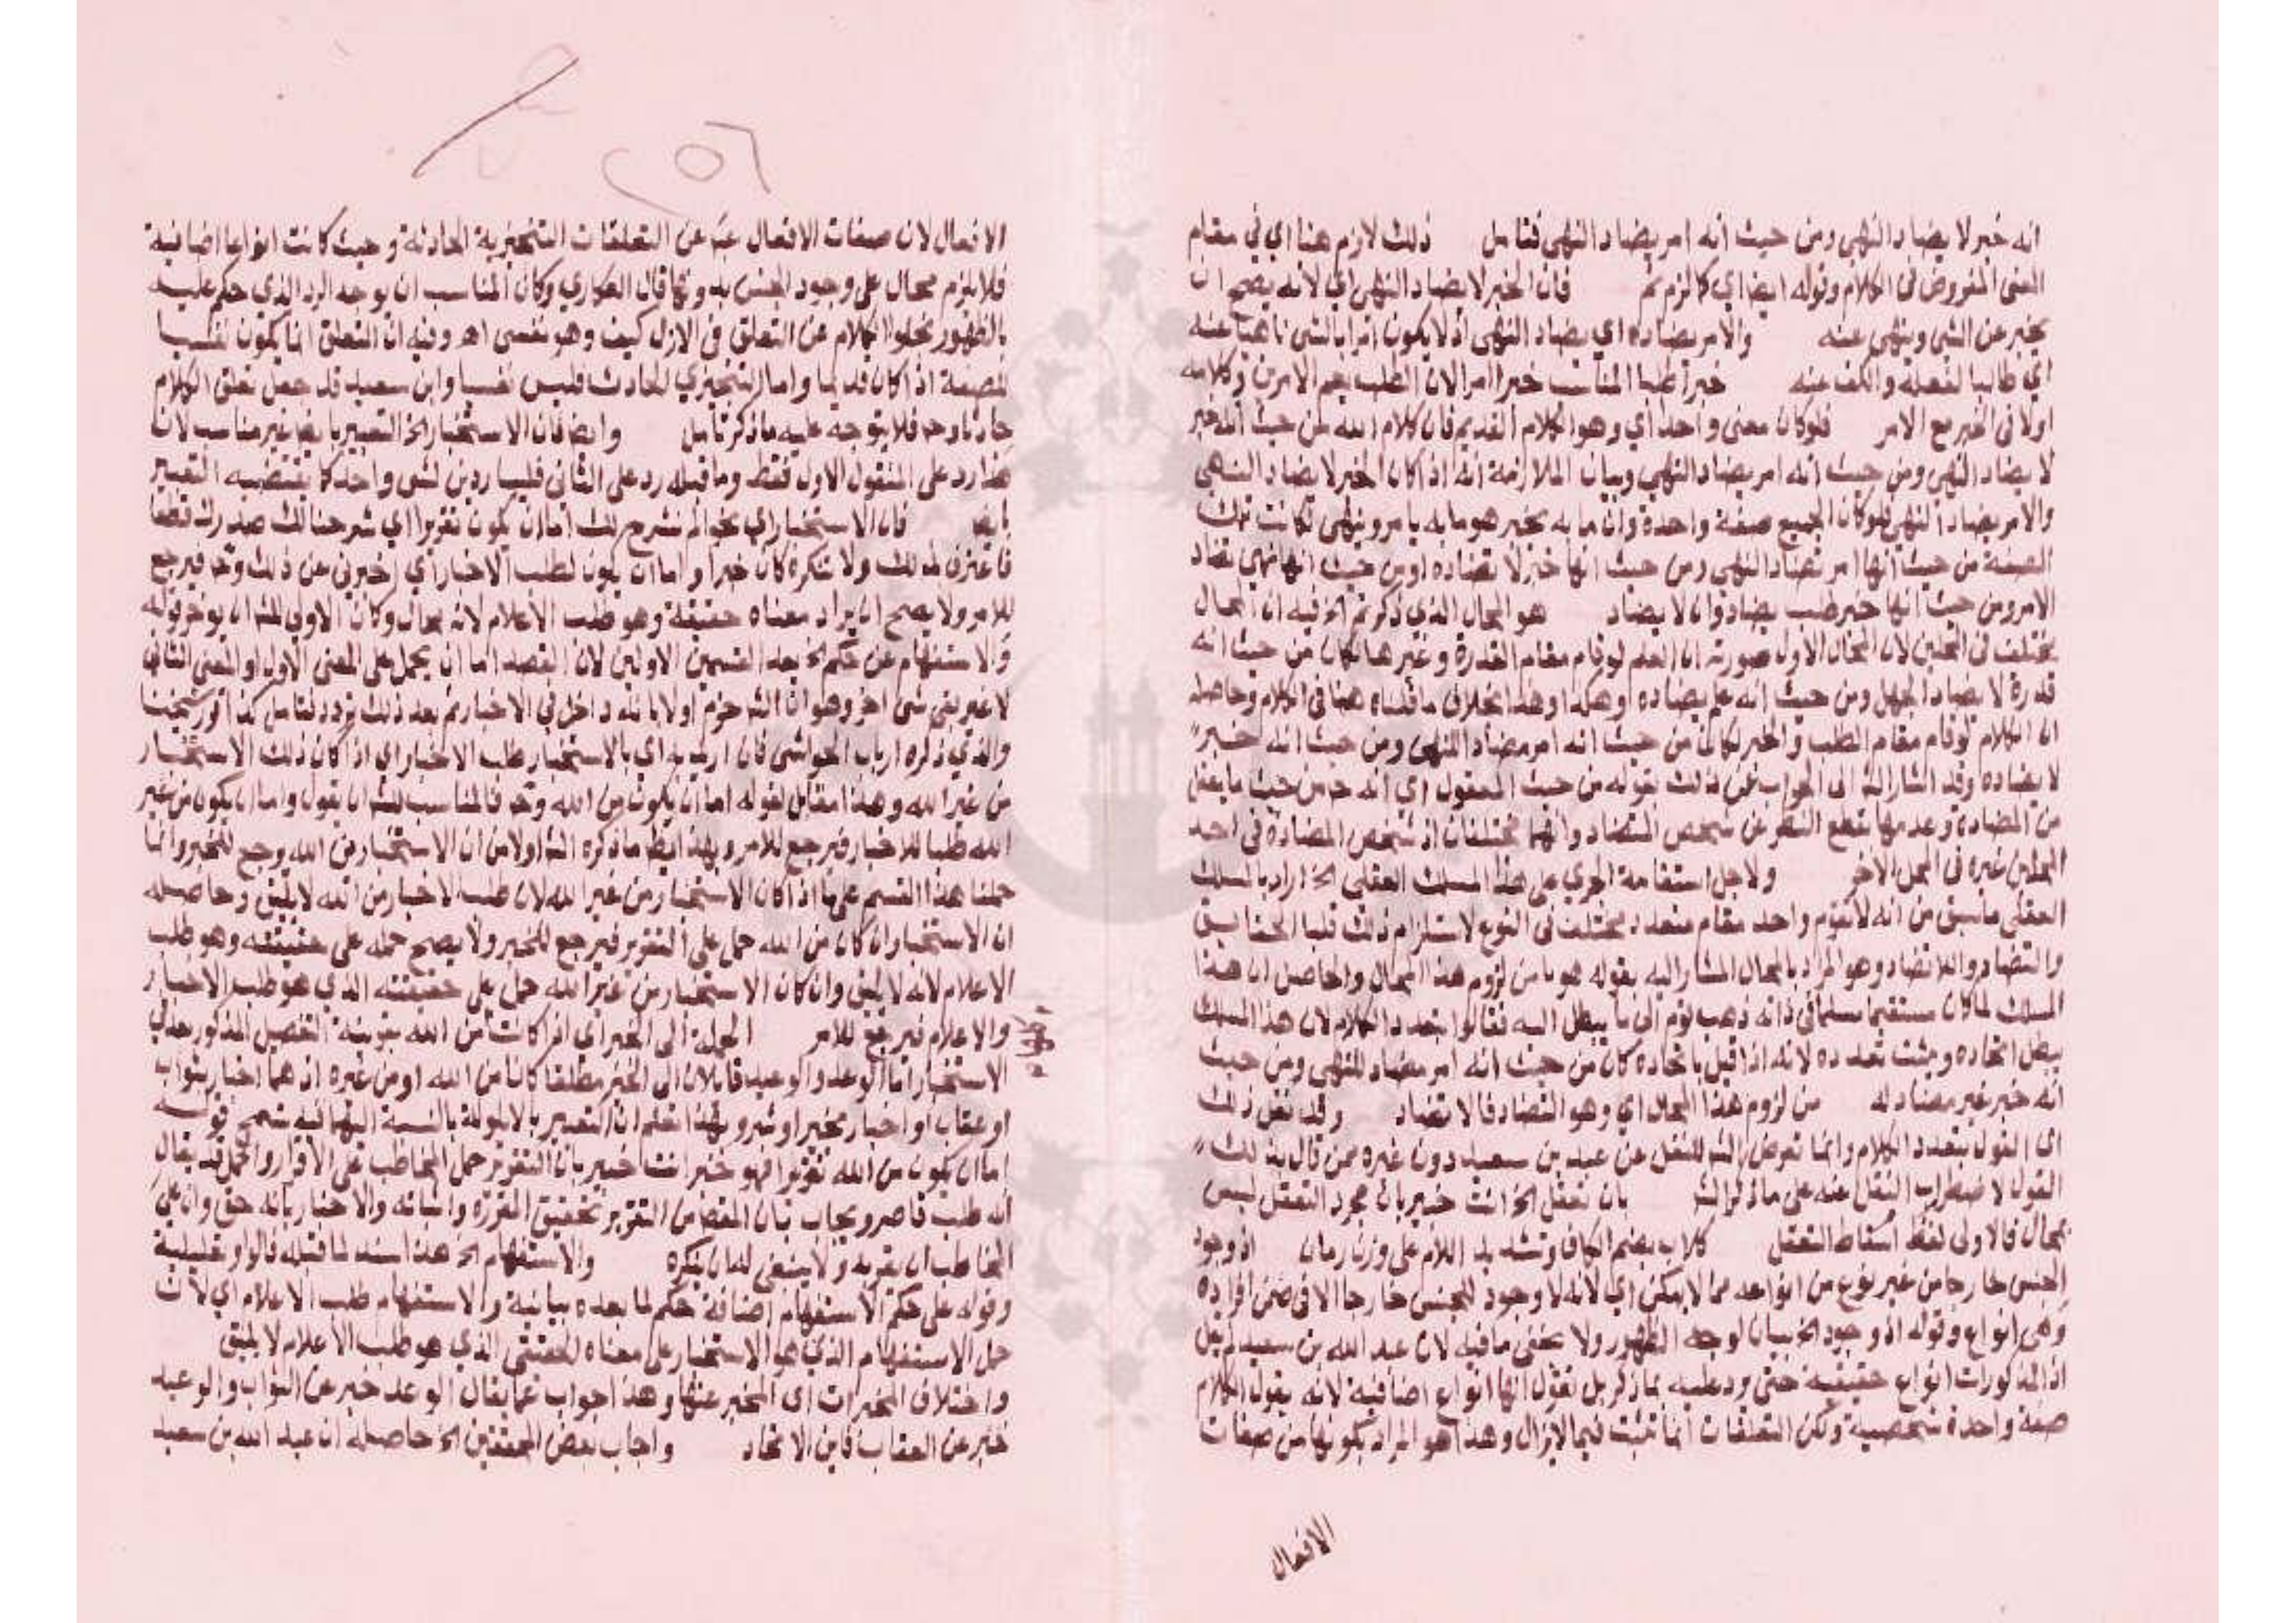 انه خبر لا يضاد النهي ومن حيث انه امر يضاد النهي فتامل ذلك لازم هنا اي في مقام
المعنى المفروض في الكلام وقوله ايضا اي كما لزم ثم فان الخبر لا يضاد النهي اي لانه يصح ان
يخبر عن الشي وينهى عنه والامر يضاده اي يضاد النهي اذ لا يكون امرا بالشي ناهيا عنه
اي طالبا لفعله والكف عنه خبرا طلبا المناسب خبرا امرا لان الطلب يعم الامرين وكلامه
اولا في الخبر مع الامر فلو كان معنى واحدا اي وهو الكلام القديم فان كلام الله من حيث انه خبر
لا يضاد النهي ومن حيث انه امر يضاد النهي وبيان الملازمة انه اذا كان الخبر لا يضاد النهي
والامر يضاد النهي فلو كان الجميع صفة واحدة وان ما به يخبر هو ما به يامر وينهى لكانت تلك
الصفة من حيث انها امر تضاد النهي ومن حيث انها خبر لا تضاده او من حيث انها نهي تضاد
الامر ومن حيث انها خبر طلب يضاد وان لا يضاد هو المحال الذي ذكر ثم اخ فيه ان المحال
يختلف في المحلين لان المحال الاول صورته ان العلم لو قام مقام القدرة وغيرها لكان من حيث انه
قدرة لا يضاد الجهل ومن حيث انه علم يضاده وهكذا وهذا بخلاف ما قلناه هنا في الكلام وحاصله
ان الكلام لو قام مقام الطلب والخبر لكان من حيث انه امر مضاد النهي ومن حيث انه خبر
لا يضاده وقد اشار الش الى الجواب عن ذلك بقوله من حيث المعقول اي انه ح من حيث ما يعقل
من المضادة وعدمها بقطع النظر عن شخص التضاد وانهما مختلفان اذ شخص المضادة في احد
المحلين غيره في المحل الاخر ولاجل استقامة الجري على هذا المسلك العقلي اخ اراد بالمسلك
العقلي ما سبق من انه لا يقوم واحد مقام متعدد مختلف في النوع لاستلزام ذلك قلب الحقايق
والتضاد واللا تضاد وهو المراد بالمحال المشار اليه بقوله هربا من لزوم هذا المحال والحاصل ان هذا
المسلك لما كان مستقيما مسلما في ذاته ذهب قوم الى ما يبطل اليه فقالوا بتعدد الكلام لان هذا المسلك
يبطل اتحاده ويثبت تعدده لانه اذا قيل باتحاده كان من حيث انه امر مضاد للنهي ومن حيث
انه خبر غير مضاد له من لزوم هذا المحال اي وهو التضاد فالا تضاد وقد نقل ذلك
اي القول بتعدد الكلام وانما تعرض الش للنقل عن عبد بن سعيد دون غيره ممن قال بذلك
القول لاضطراب النقل عنه على ما ذكر الش بان تعقل اخ انت خبير بان مجرد التعقل ليس
بمحال فالاولى لفظ اسقاط التعقل كلاب بضم الكاف وتشديد اللام على وزن رمان اذ وجود
الجنس خارجا من غير نوع من انواعه مما لا يمكن اي لانه لا وجود للجنس خارجا الا في ضمن افراده
وهي انواع وقوله اذ وجود اخ بيان لوجه الظهور ولا يخفى ما فيه لان عبد الله بن سعيد لم يقل
اذ المذكورات انواع حقيقية حتى يرد عليه بما ذكر بل نقول انها انواع اضافية لانه يقول الكلام
صفة واحدة شخصية ولكن التعلقات انما تثبت فيما لا يزال وهذا هو المراد بكونها من صفات
الافعال
٢٥٦
الافعال لان صفات الافعال عبة عن التعلقات التنجيزية الحادثة وحيث كانت انواعا اضافية
فلا يلزم محال على وجود الجنس به ونها قال العكاري وكان المناسب ان يوجه الرد الذي حكم عليه
بالظهور بخلو الكلام عن التعلق في الازل كيف وهو نفسى اه وفيه ان التعلق انما يكون نفسيا
للصفة اذا كان قديما واما التنجيزي الحادث فليس نفسيا وابن سعيد قد جعل تعلق الكلام
حادثا وح فلا يتوجه عليه ما ذكر تامل وايضا فان الاستخبار اخ التعبير بايضا غير مناسب لان
هذا رد على المنقول الاول فقط وما قبله رد على الثاني فليسا ردين لشي واحد كما يقتضيه التعبير
بايضا فان الاستخبار اي نحو الم نشرح لك اما ان يكون تقريرا اي شرحنا لك صدرك قطعا
فاعترف بذلك ولا تنكره كان خبرا واما ان يكون لطلب الاخبار اي اخبرني عن ذلك وح فيرجع
للامر ولا يصح ان يراد معناه حقيقة وهو طلب الاعلام لانه محال وكان الاولى للش ان يوخر قوله
والاستفهام عن حكم اخ بعد القسمين الاولين لان القصد اما ان يحمل على المعنى الاول او المعنى الثاني
لا غير بقي شي اخر وهو ان الش جزم اولا بانه داخل في الاخبار ثم بعد ذلك تردد فتامل كذا قرر شيخنا
والذي ذكره ارباب الحواشي فان اريد به اي بالاستخبار طلب الاخبار اي اذا كان ذلك الاستخبار
من غير الله وهذا مقابل لقوله اما ان يكون من الله وح فالمناسب للش ان يقول واما ان يكون من غير
الله طلبا للاخبار فيرجع للامر وبهذا بطل ما ذكره الش اولا من ان الاستخبار من الله يرجع للخبر وانما
حملنا هذا القسم على ما اذا كان الاستخبار من غير الله لان طلب الاخبار من الله لا يليق وحاصله
ان الاستخبار ان كان من الله حمل على التقرير فيرجع للخبر ولا يصح حمله على حقيقته وهو طلب
الاعلام لانه لا يليق وان كان الاستخبار من غير الله حمل على حقيقته الذي هو طلب الاخبار
والاعلام فيرجع للامر الجملة الى الخبر اي اذا كانت من الله بقرينة التفصيل المذكور بعد في
الاستخبار اما الوعد والوعيد فايلان الى الخبر مطلقا كانا من الله او من غيره اذ هما اخبار بثواب
او عقاب او اخبار بخير او شر وبهذا تعلم ان التعبير بالايولة بالنسبة اليهما فيه تسمح قوله
اما ان يكون من الله تقريرا فهو خبر انت خبير بان التقرير حمل المخاطب على الاقرار والحمل قد يقال
انه طلب قاصر ويجاب بان القصد من التقرير تحقيق المقرره واثباته والاخبار بانه حق وان على
المخاطب ان يقر به ولا ينبغي له ان ينكره والاستفهام اخ هذا سند لما قبله فالواو تعليلية
وقوله على حكم الاستفهام اضافة حكم لما بعده بيانية والاستفهام طلب الاعلام اي لان
حمل الاستفهام الذي هو الاستخبار على معناه الحقيقي الذي هو طلب الاعلام لا يليق
واختلاف المخبرات اي المخبر عنها وهذا جواب عما يقال الوعد خبر عن الثواب والوعيد
خبر عن العقاب فاين الاتحاد واجاب بعض المحققين اخ حاصله ان عبد الله بن سعيد